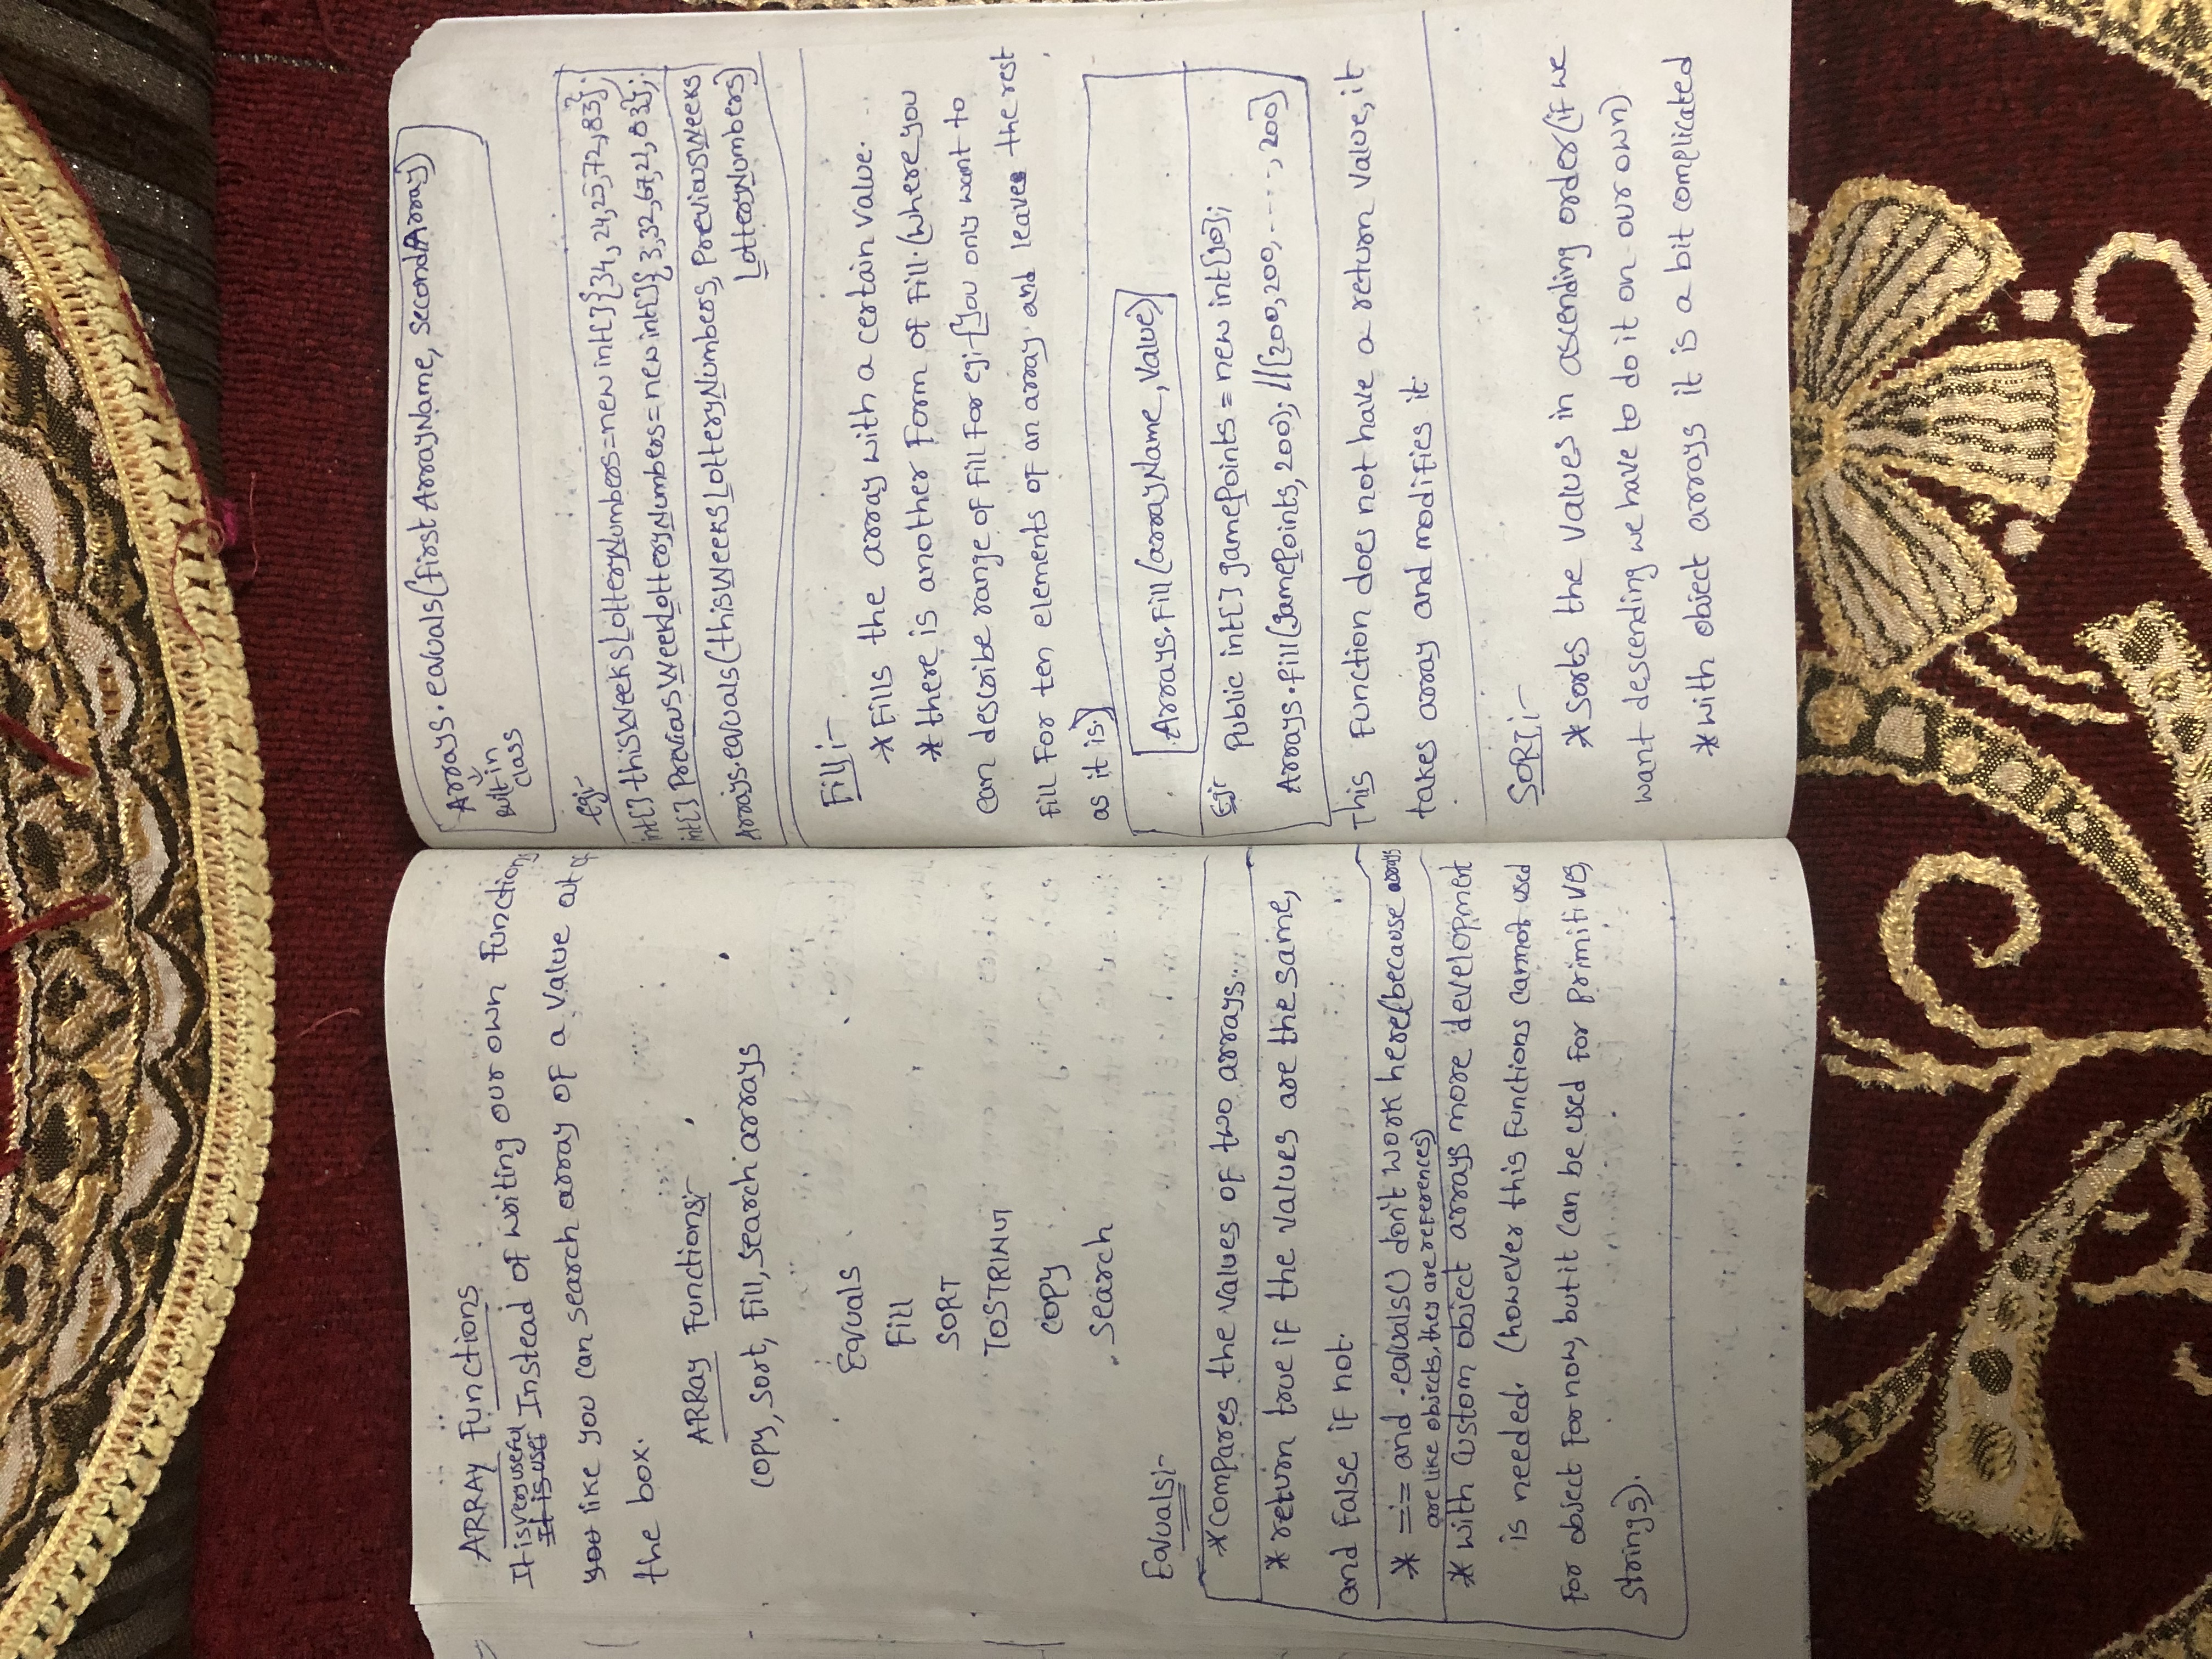 ARRAY Functions
It is very useful Instead of writing our own Functions
It is use
you like you can search array of a value out of
the box.
ARRay Functions:-
copy, sort, Fill, search arrays
Equals
Fill
SORT
TOSTRING
copy
search
Equals:-
*compares the values of two arrays.
* return true if the values are the same,
and False if not.
* == and .equals() don't work here(because arrays
are like objects, they are references)
* with custom object arrays more development
is needed. (however this Functions cannot used
For object For now, but it can be used For Primitives,
strings).
Arrays.equals(first ArrayName, secondArray)
Built-in
class
eg:-
int[] thisWeeksLotteryNumbers=new int[]{34, 24,25,72,83};
int[] PreviousWeekLotteryNumbers=new int[]{ 3,32,67,21,83};
Arrays.equals(thisWeeksLotteryNumbers, PreviousWeeks
LotteryNumbers)
Fill:-
*Fills the array with a certain value.
* there is another Form of Fill. (where you
can describe range of Fill For eg:-[You only want to
Fill For ten elements of an array and leaves the rest
as it is.]
Arrays.Fill (arrayName, Value)
Eg:- Public int[] gamePoints = new int[10];
Arrays.fill(gamePoints, 200); //[200, 200, - - - -, 200]
This Function does not have a return value, it
takes array and modifies it.
SORT:-
*sorts the values in ascending order(if we
want descending we have to do it on our own)
*with object arrays it is a bit complicated